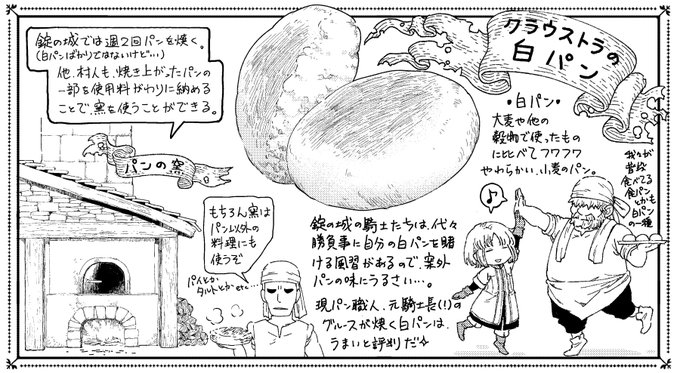 クラウストラの
白パン
錠の城では週2回パンを焼く。
(白パンばかりではないけど…)
他、村人も、焼き上がったパンの
一部を使用料がわりに納める
ことで、窯を使うことができる。
パンの窯
・白パン・
大麦や他の
穀物で使ったもの
に比べてフワフワ
やわらかい、小麦のパン。
我々が
普段
食べてる
食パン
とかも
白パン
の一種
もちろん窯は
パン以外の
料理にも
使うぞ
パイとか
タルトとかetc…
錠の城の騎士たちは、代々
勝負事に自分の白パンを賭
ける風習があるので、案外
パンの味にうるさい…。
現パン職人、元騎士長(!)の
グルースが焼く白パンは、
うまいと評判だ
♪